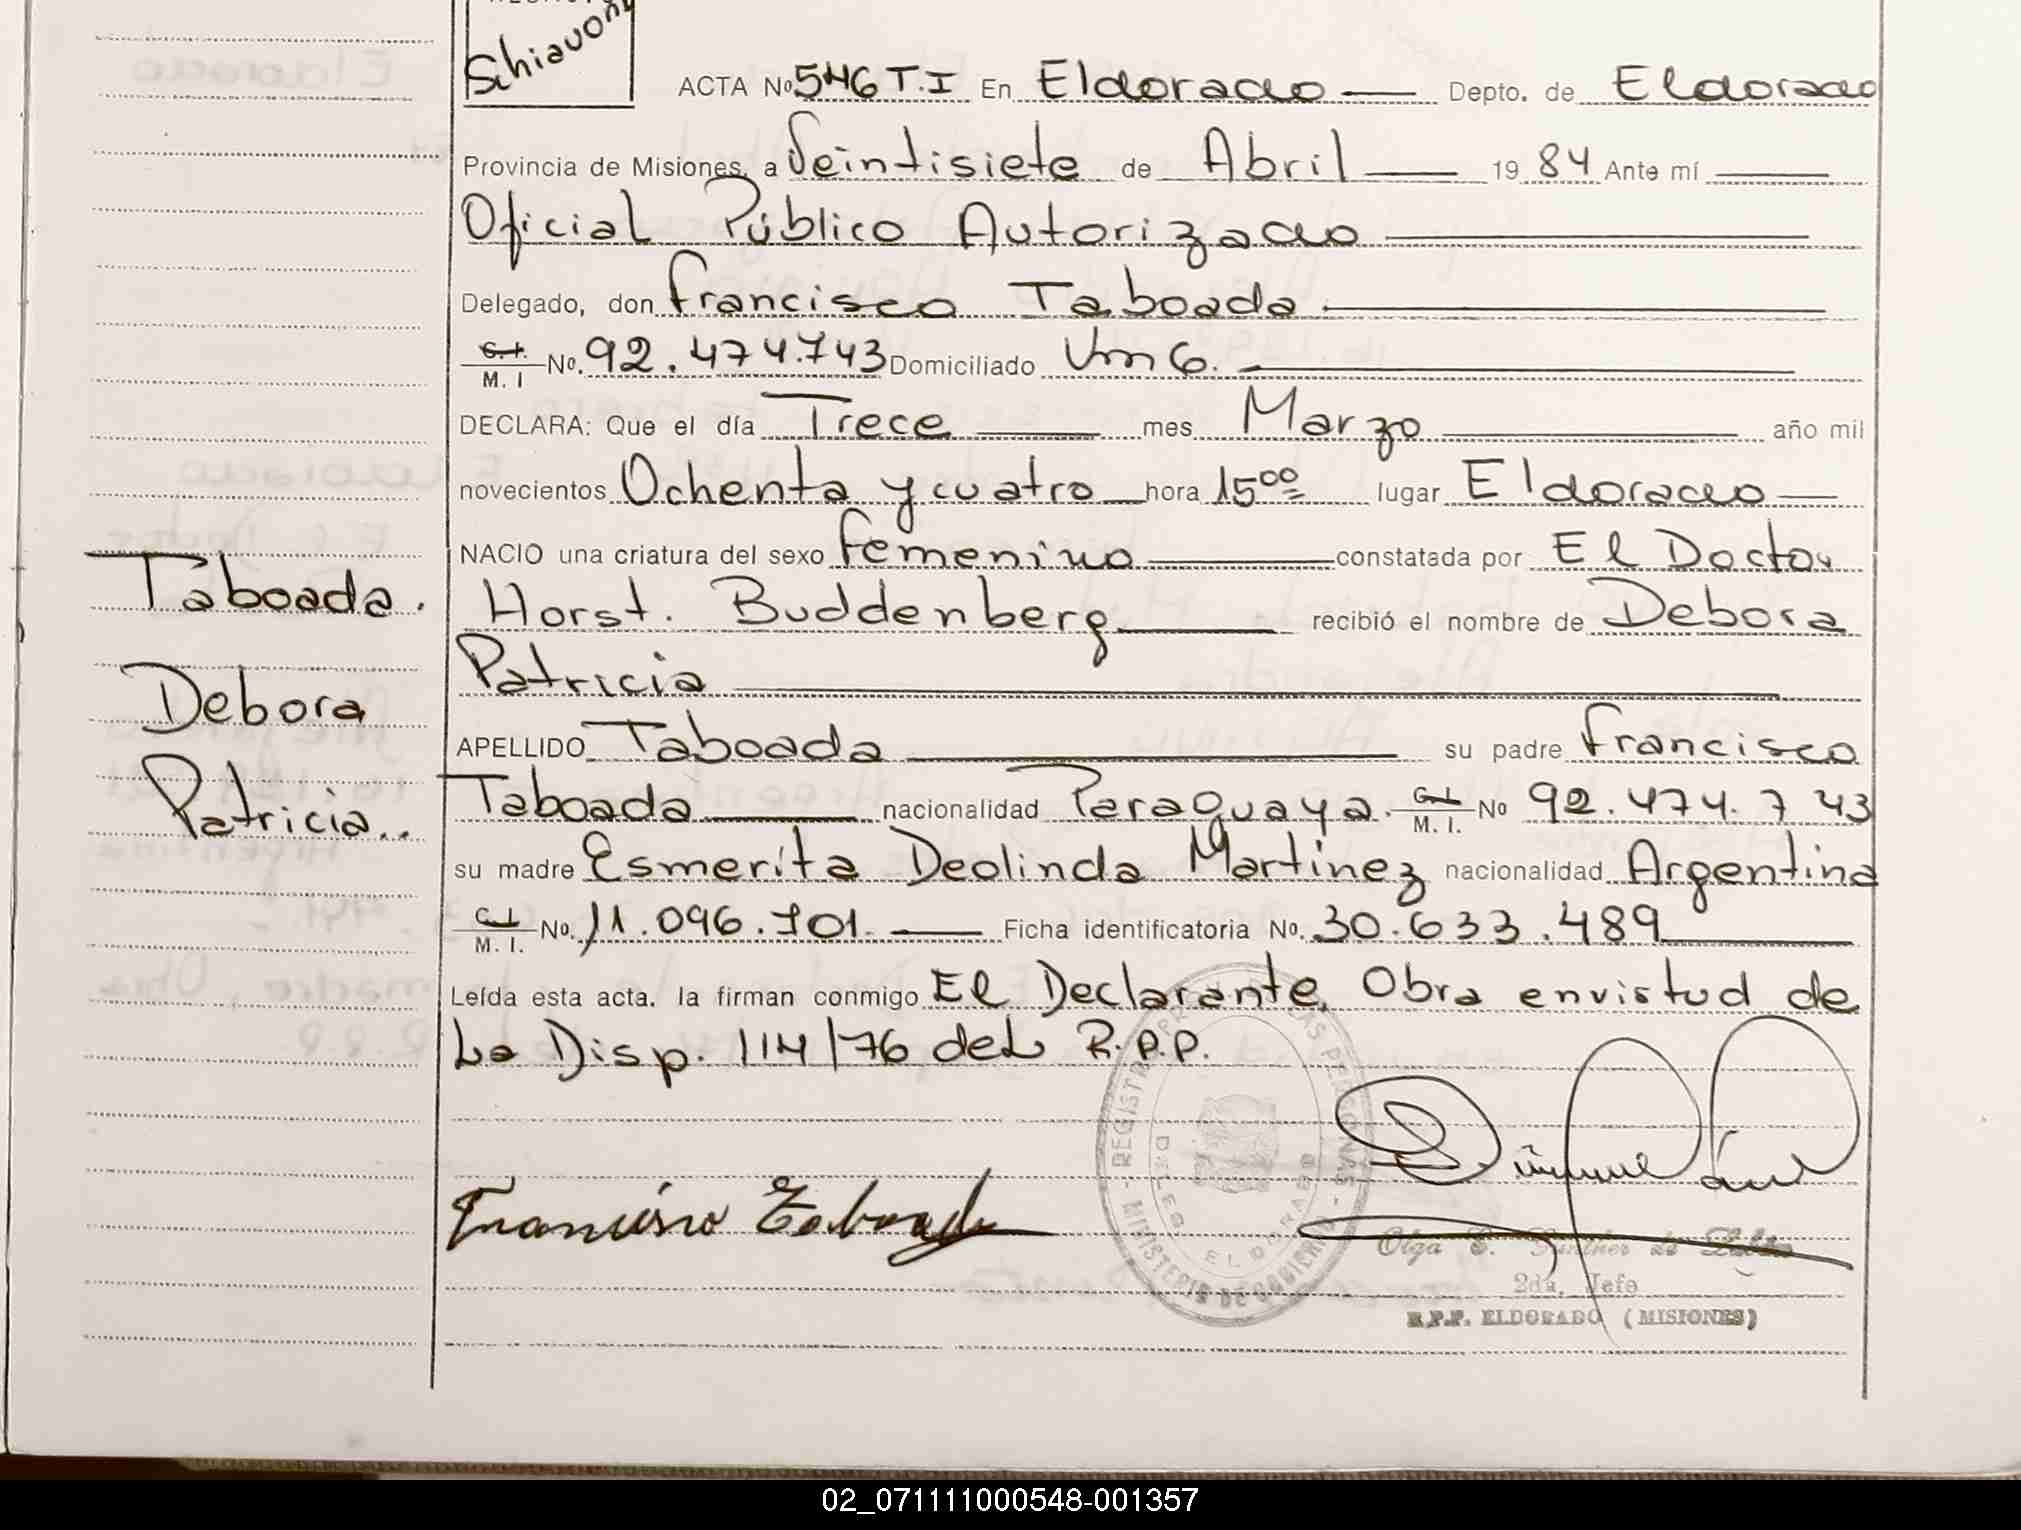 Schiavoni
ACTA Nº 546 T.I En Eldorado Depto. de Eldorado
Provincia de Misiones, a Veintisiete de Abril 19 84 Ante mí
Oficial Público Autorizado
Delegado, don Francisco Taboada
C.I. M. I Nº. 92.474.743 Domiciliado Km 6.
DECLARA: Que el día Trece mes Marzo año mil
novecientos Ochenta y cuatro hora 15⁰⁰ lugar Eldorado
NACIO una criatura del sexo femenino constatada por El Doctor
Taboada.
Horst. Buddenberg recibió el nombre de Debora
Patricia
Debora
APELLIDO Taboada su padre Francisco
Patricia..
Taboada nacionalidad Paraguaya. C.I. M. I. Nº 92.474.743
su madre Esmerita Deolinda Martinez nacionalidad Argentina
C.I. M. I. Nº. 11.096.701. Ficha identificatoria Nº. 30.633.489
Leída esta acta, la firman conmigo El Declarante. Obra envistud de
La Disp. 114/76 del R.P.P.
Francisco Taboada
REGISTRO PROV. DE LAS PERSONAS - MINISTERIO DE GOBIERNO -
ELDORADO
Olga E.
2da. Jefe
R.P.P. ELDORADO (MISIONES)
02_071111000548-001357